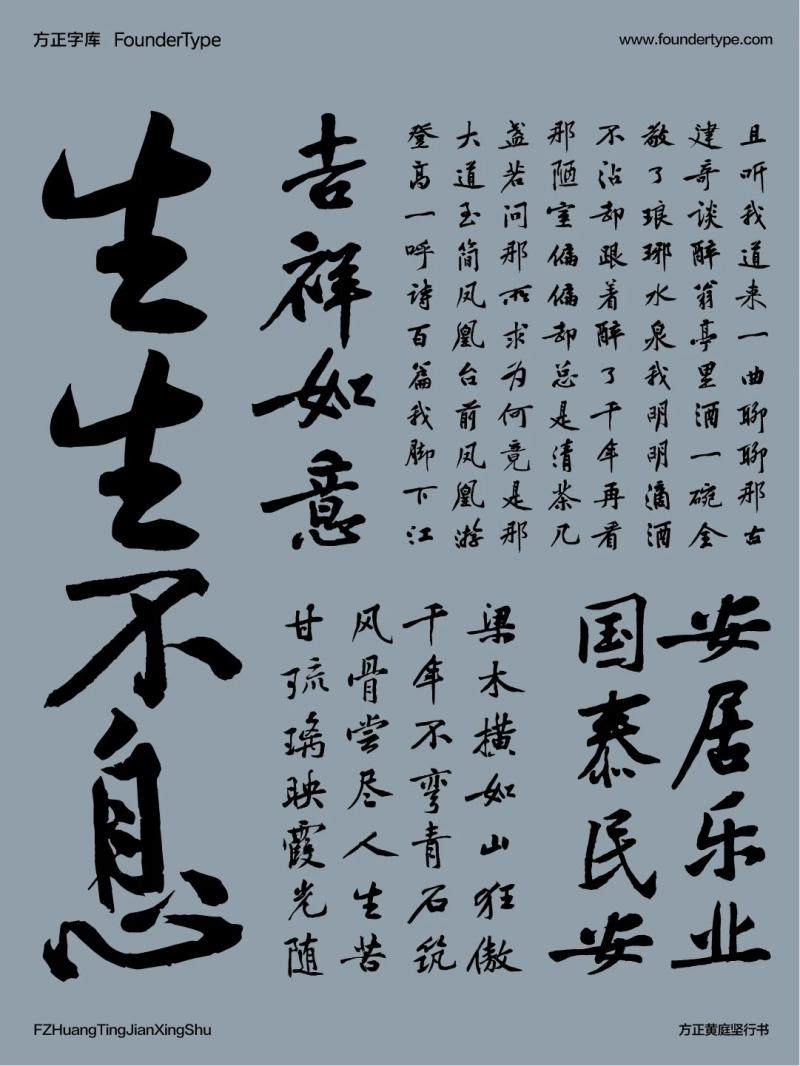 方正字库 FounderType
www.foundertype.com
且听我道来一曲聊聊那古
建奇谈醉翁亭里酒一碗全
敬了琅琊水泉我明明滴酒
不沾却跟着醉了千年再看
那陋室偏偏却总是清茶几
盏若问那所求为何竟是那
大道玉简凤凰台前凤凰游
登高一呼诗百篇我脚下江
吉祥如意
生生不息
安居乐业
国泰民安
梁木横如山狂傲
千年不弯青石筑
风骨尝尽人生苦
甘琉璃映霞光随
FZHuangTingJianXingShu
方正黄庭坚行书